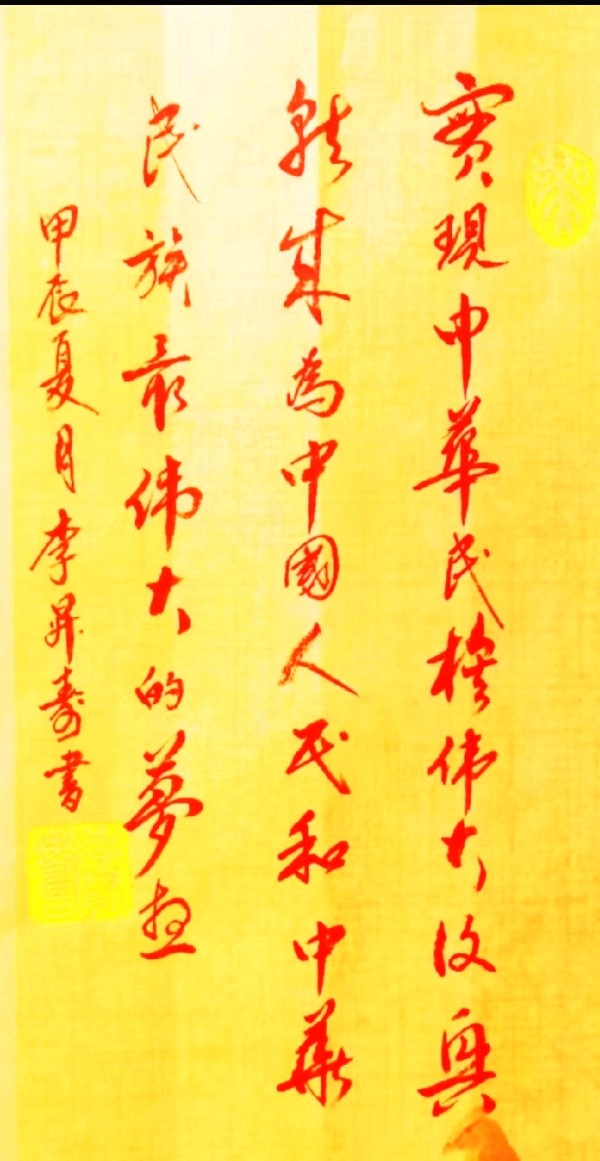 實現中華民族伟大復興
就成為中國人民和中華
民族最伟大的夢想
甲辰夏月李昇壽書